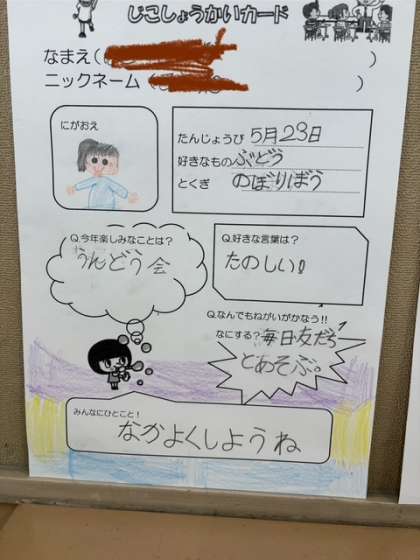 じこしょうかいカード
なまえ( )
ニックネーム( )
にがおえ
たんじょうび 5月23日
好きなもの ぶどう
とくぎ のぼりぼう
Q.今年楽しみなことは?
うんどう会
Q.好きな言葉は?
たのしい!
Q.なんでもねがいがかなう!!
なにする? 毎日友だち
とあそぶ。
みんなにひとこと!
なかよくしようね